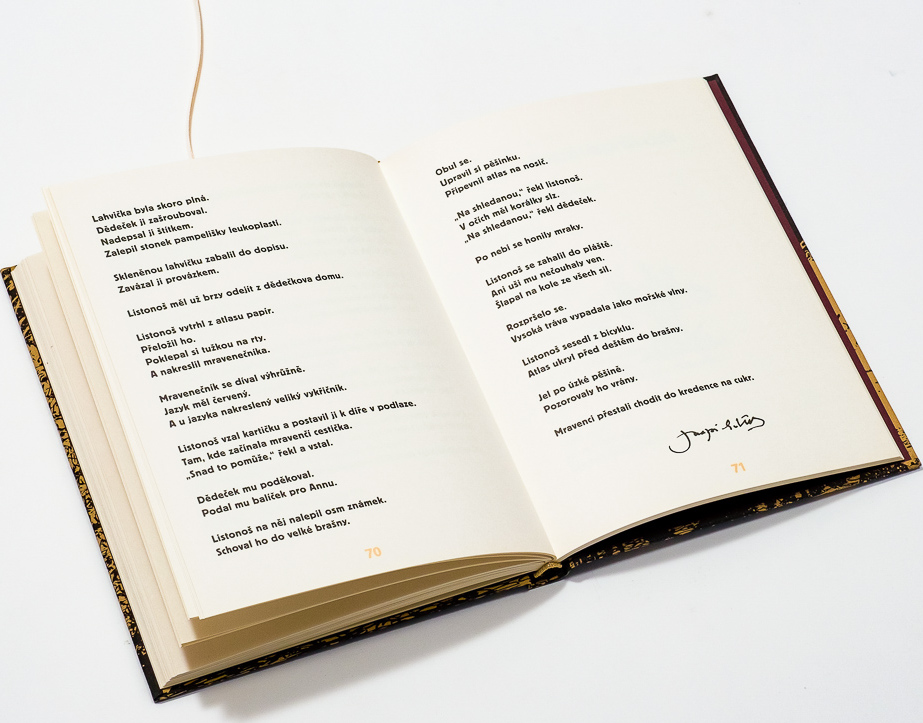 Lahvička byla skoro plná.
Dědeček ji zašrouboval.
Nadepsal ji štítkem.
Zalepil stonek pampelišky leukoplastí.
Skleněnou lahvičku zabalil do dopisu.
Zavázal ji provázkem.
Listonoš měl už brzy odejít z dědečkova domu.
Listonoš vytrhl z atlasu papír.
Přeložil ho.
Poklepal si tužkou na rty.
A nakreslil mravenečníka.
Mravenečník se díval výhrůžně.
Jazyk měl červený.
A u jazyka nakreslený veliký vykřičník.
Listonoš vzal kartičku a postavil ji k díře v podlaze.
Tam, kde začínala mravenčí cestička.
„Snad to pomůže,“ řekl a vstal.
Dědeček mu poděkoval.
Podal mu balíček pro Annu.
Listonoš na něj nalepil osm známek.
Schoval ho do velké brašny.
70
Obul se.
Upravil si pěšinku.
Připevnil atlas na nosič.
„Na shledanou,“ řekl listonoš.
V očích měl korálky slz.
„Na shledanou,“ řekl dědeček.
Po nebi se honily mraky.
Listonoš se zahalil do pláště.
Ani uši mu nečouhaly ven.
Šlapal na kole ze všech sil.
Rozpršelo se.
Vysoká tráva vypadala jako mořské vlny.
Listonoš sesedl z bicyklu.
Atlas ukryl před deštěm do brašny.
Jel po úzké pěšině.
Pozorovaly ho vrány.
Mravenci přestali chodit do kredence na cukr.
71